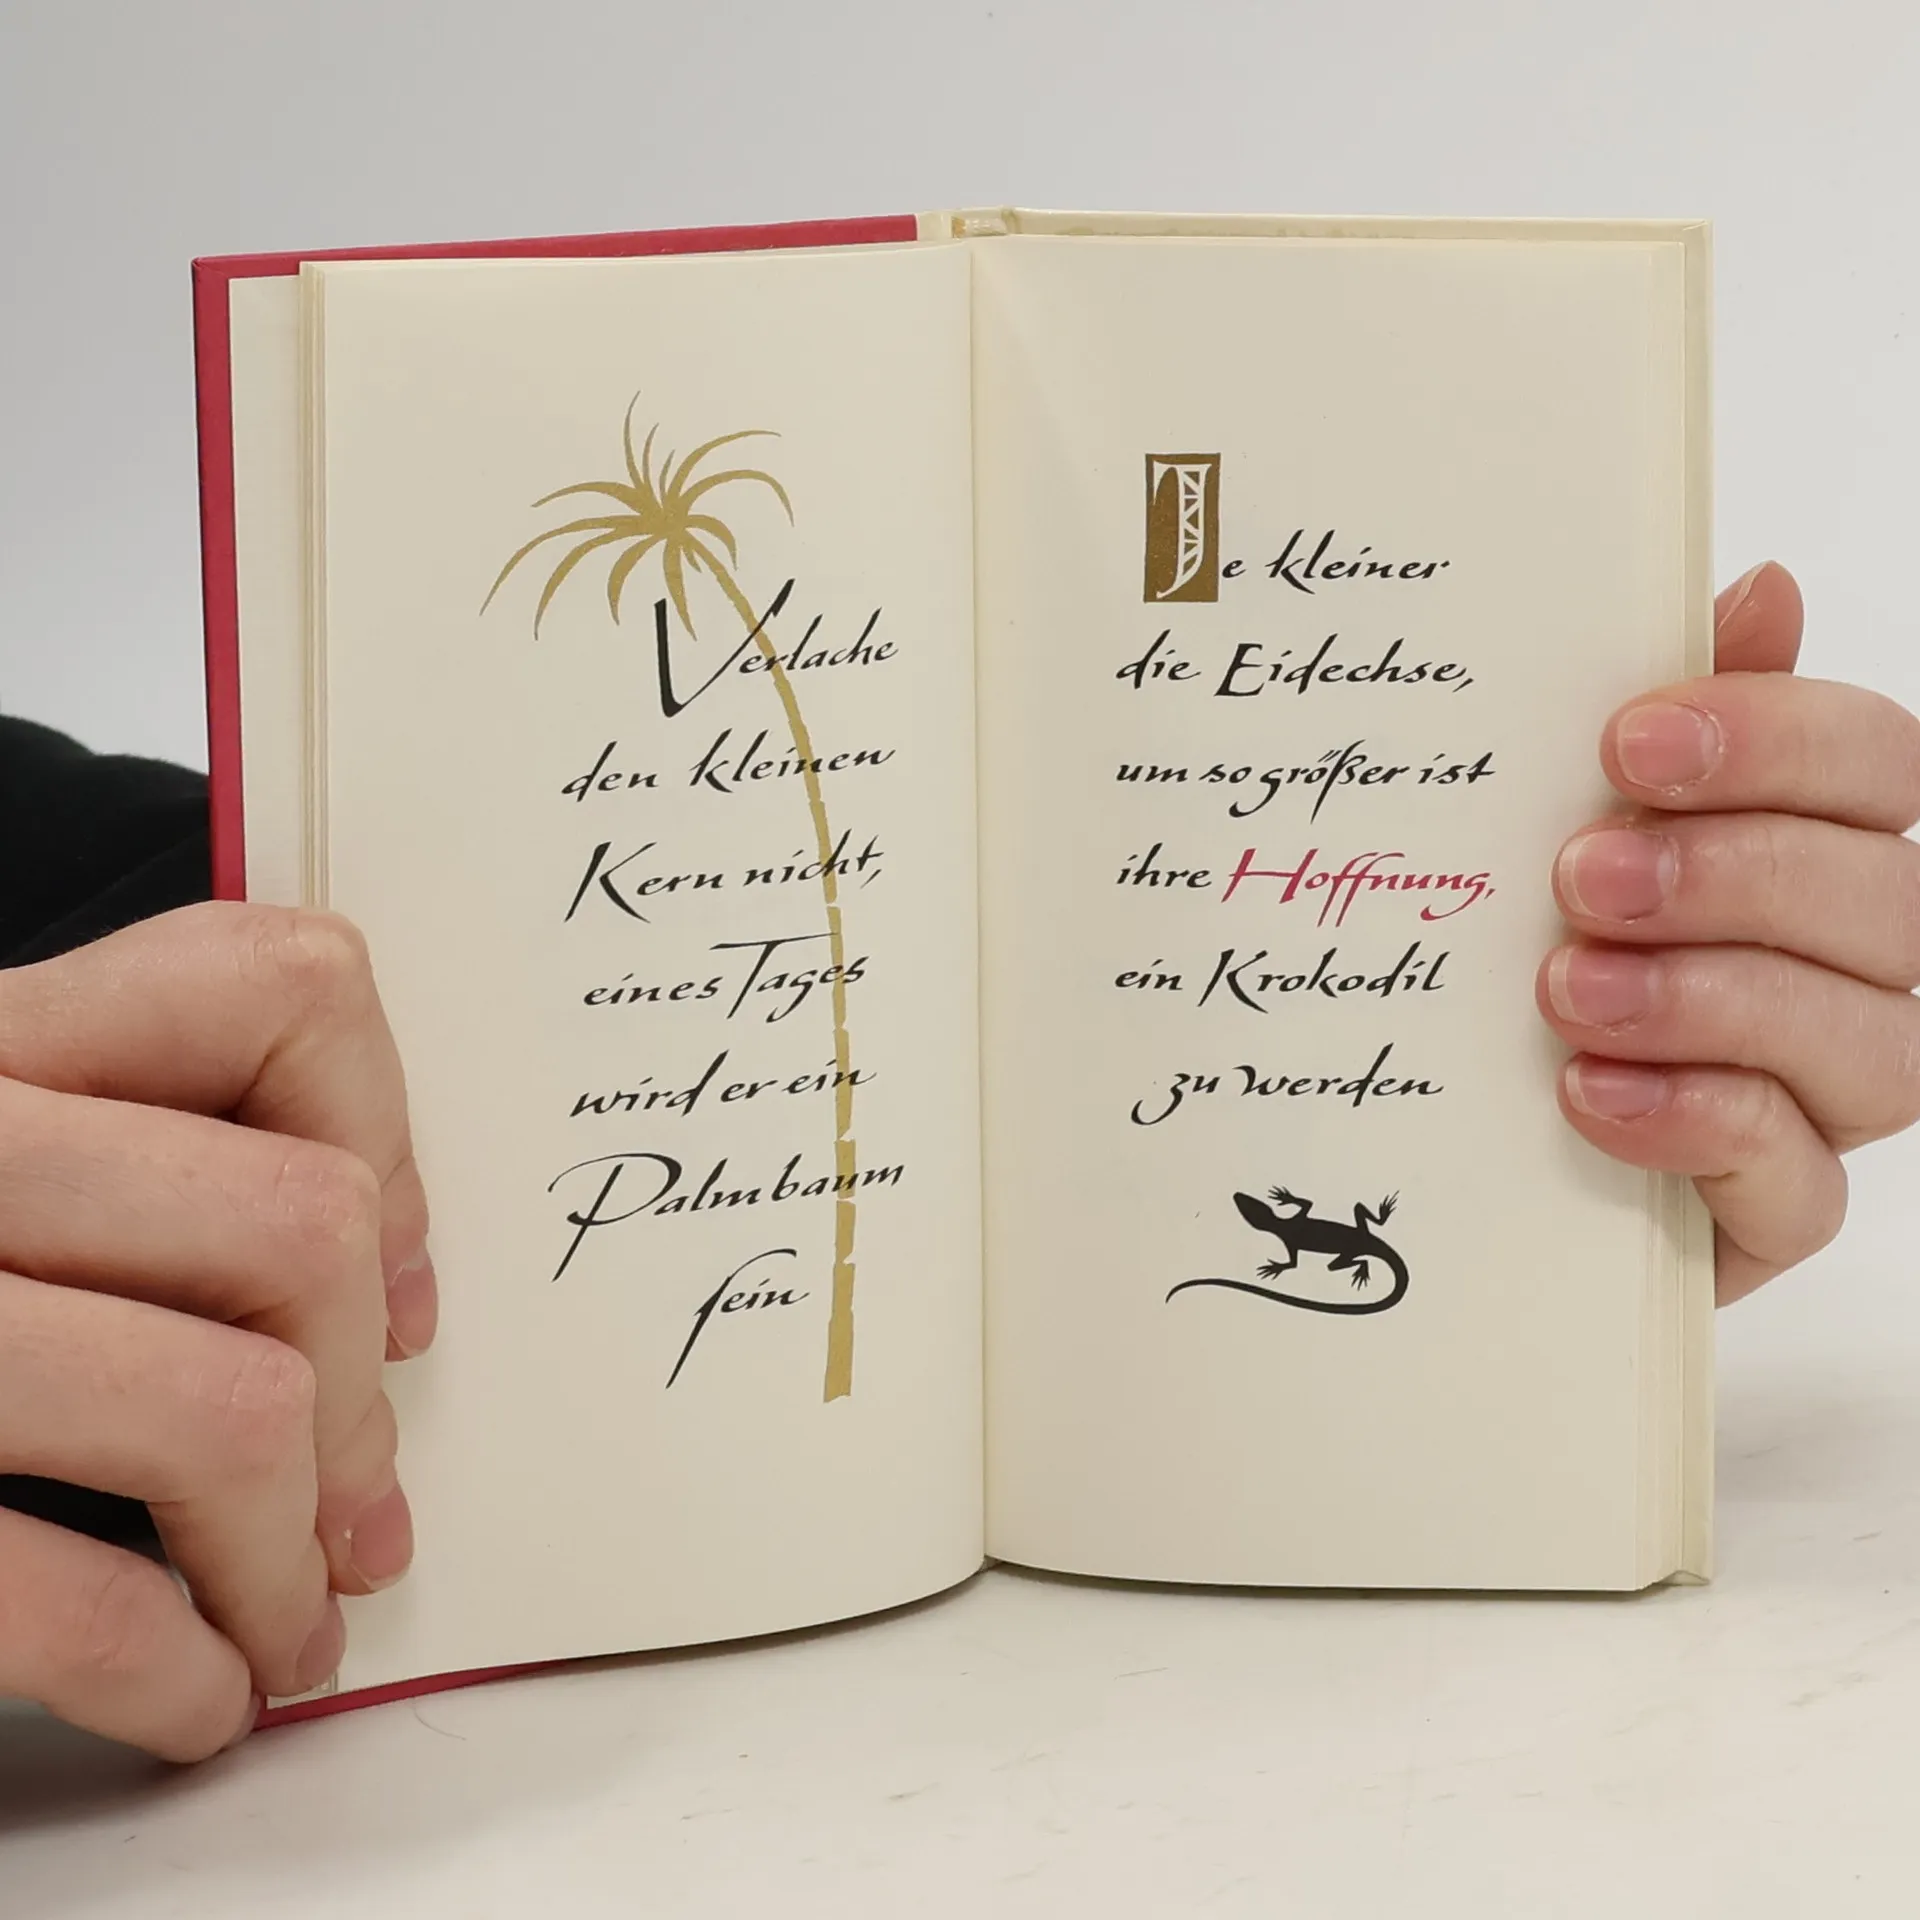 Verlache
den kleinen
Kern nicht,
eines Tages
wird er ein
Palmbaum
sein
Je kleiner
die Eidechse,
um so größer ist
ihre Hoffnung,
ein Krokodil
zu werden